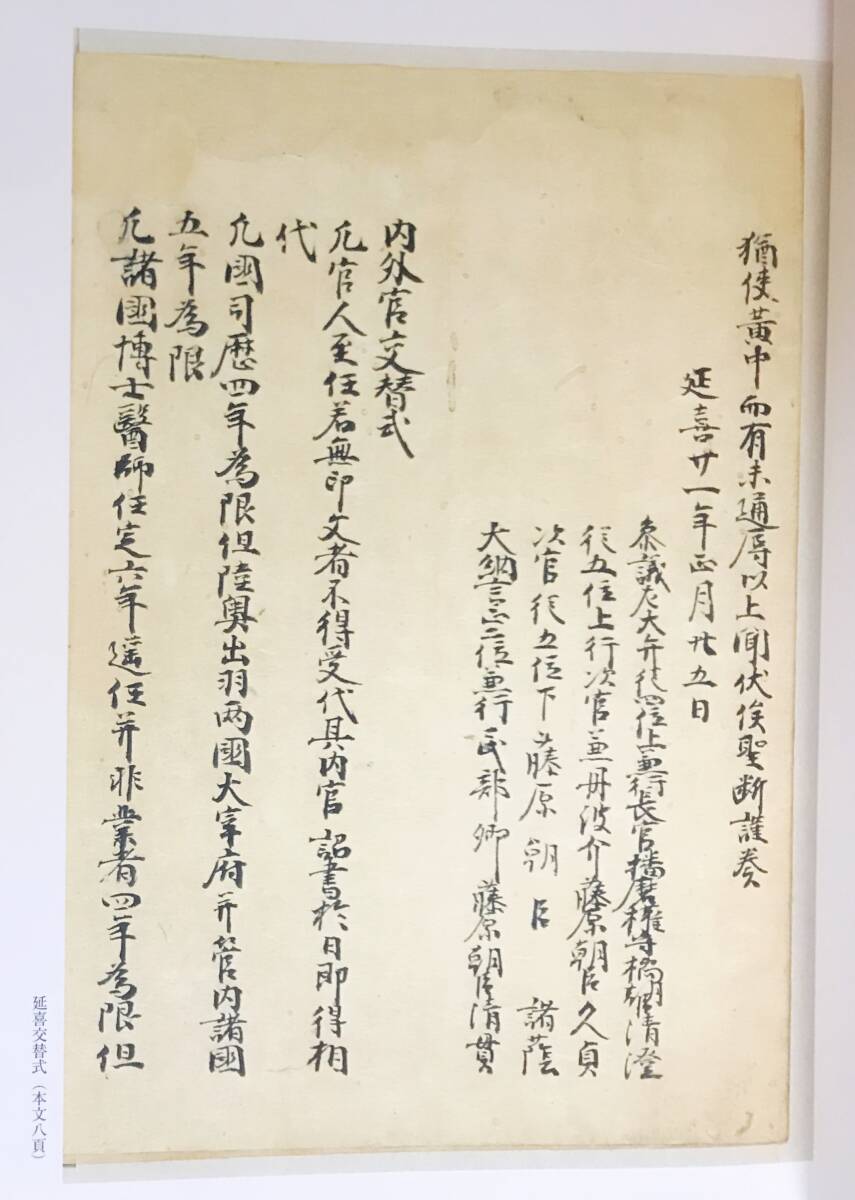 猶使黄中而有未通辱以上聞伏俟聖断謹奏
延喜廿一年正月廿五日
参議左大弁従四位上兼行長官播磨権守橘朝臣清澄
従五位上行次官兼丹波介藤原朝臣久貞
次官従五位下藤原朝臣 諸蔭
大納言正三位兼行民部卿藤原朝臣清貫
内外官交替式
凡官人至任若無印文者不得受代其内官詔書於日即得相
代
凡國司歴四年為限但陸奥出羽两國大宰府并管内諸國
五年為限
凡諸國博士醫師任定六年遥任并非業者四年為限但
延喜交替式（本文八頁）